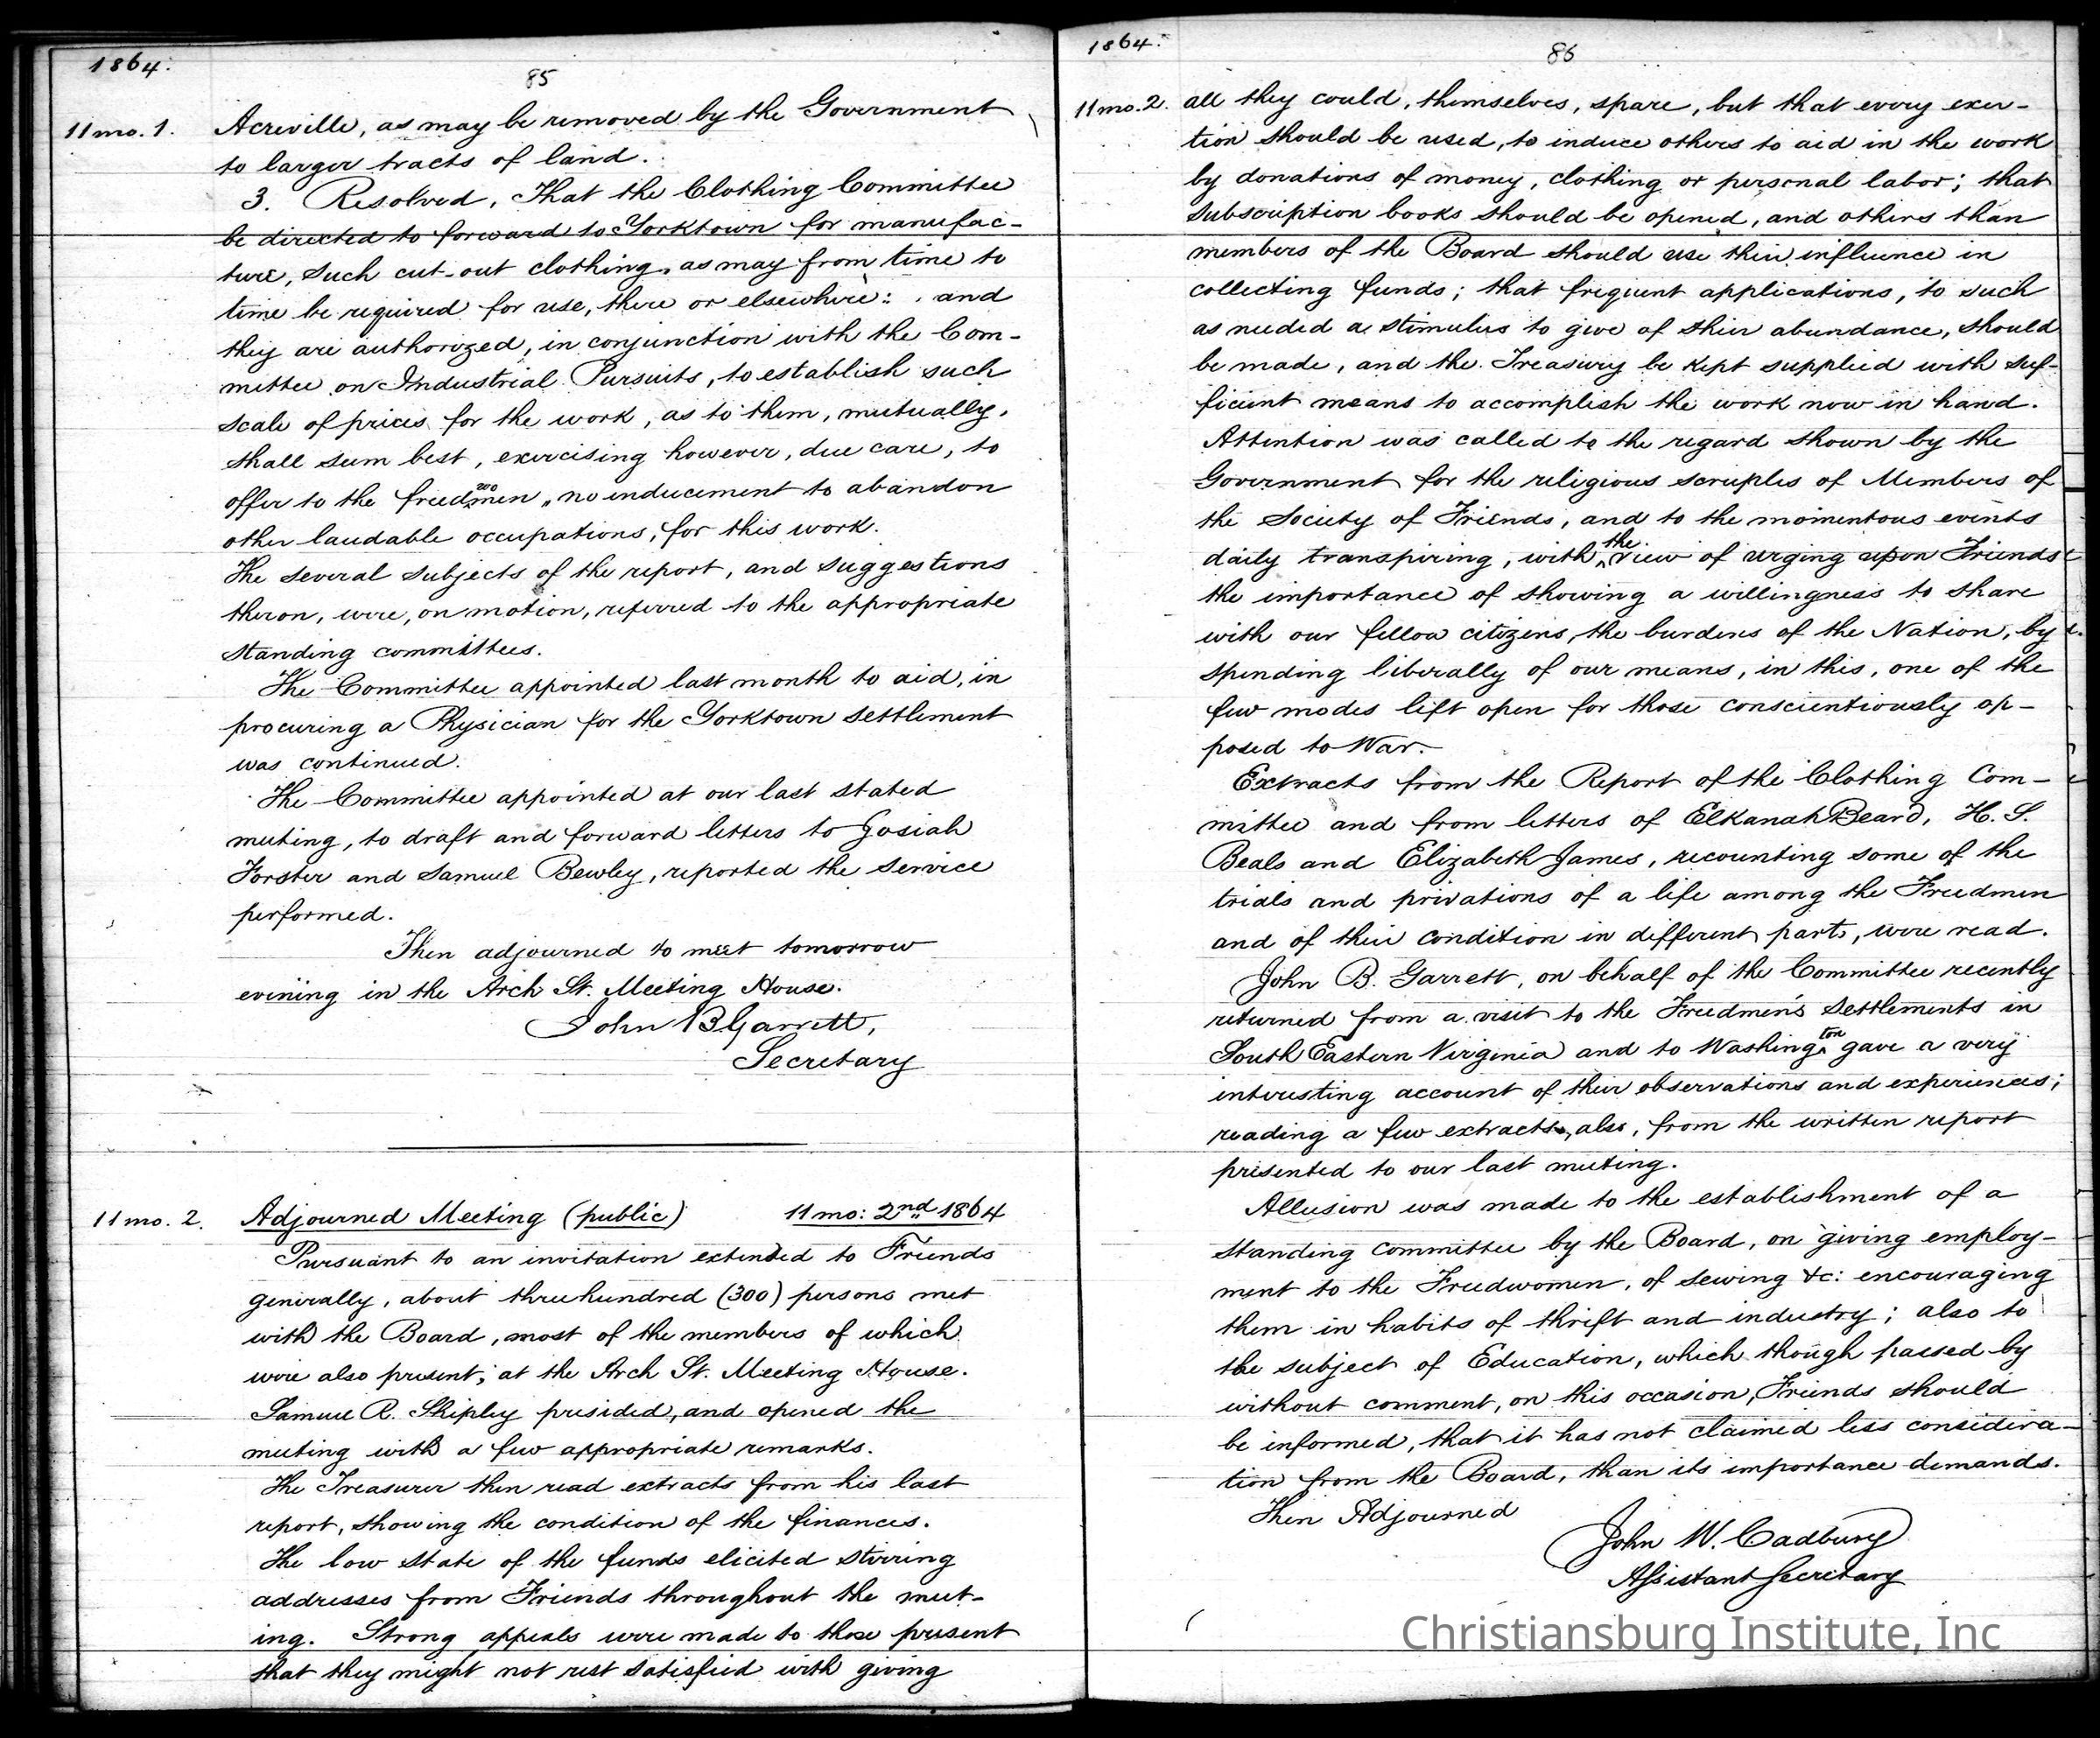 1864.
85
11mo. 1. Acreville, as may be removed by the Government
to larger tracts of land.
3. Resolved, That the Clothing Committee
be directed to forward to Yorktown for manufac-
ture, such cut-out clothing, as may from time to
time be required for use, there or elsewhere: and
they are authorized, in conjunction with the Com-
mittee on Industrial Pursuits, to establish such
scale of prices for the work, as to them, mutually,
shall seem best, exercising however, due care, to
offer to the freedwomen, no inducement to abandon
other laudable occupations, for this work.
The several subjects of the report, and suggestions
theron, were, on motion, referred to the appropriate
standing committees.
The Committee appointed last month to aid, in
procuring a Physician for the Yorktown settlement
was continued.
The Committee appointed at our last stated
meeting, to draft and forward letters to Josiah
Forster and Samuel Bewley, reported the service
performed.
Then adjourned to meet tomorrow
evening in the Arch St. Meeting House.
John B Garrett,
Secretary
11mo. 2. Adjourned Meeting (public) 11mo: 2nd 1864
Pursuant to an invitation extended to Friends
generally, about three hundred (300) persons met
with the Board, most of the members of which
were also present, at the Arch St. Meeting House.
Samuel R. Shipley presided, and opened the
meeting with a few appropriate remarks.
The Treasurer then read extracts from his last
report, showing the condition of the finances.
The low state of the funds elicited stirring
addresses from Friends throughout the meet-
ing. Strong appeals were made to those present
that they might not rest satisfied with giving
1864.
86
11mo. 2. all they could, themselves, spare, but that every exer-
tion should be used, to induce others to aid in the work
by donations of money, clothing or personal labor; that
subscription books should be opened, and others than
members of the Board should use their influence in
collecting funds; that frequent applications, to such
as needed a stimulus to give of their abundance, should
be made, and the Treasury be kept supplied with suf-
ficient means to accomplish the work now in hand.
Attention was called to the regard shown by the
Government for the religious scruples of Members of
the Society of Friends, and to the momentous events
daily transpiring, with the view of urging upon Friends
the importance of showing a willingness to share
with our fellow citizens, the burdens of the Nation, by
spending liberally of our means, in this, one of the
few modes left open for those conscientiously op-
posed to War.
Extracts from the Report of the Clothing Com-
mittee and from letters of Elkanah Beard, H. S.
Beals and Elizabeth James, recounting some of the
trials and privations of a life among the Freedmen
and of their condition in different parts, were read.
John B. Garrett, on behalf of the Committee recently
returned from a visit to the Freedmen's Settlements in
South Eastern Virginia and to Washington gave a very
interesting account of their observations and experiences;
reading a few extracts, also, from the written report
presented to our last meeting.
Allusion was made to the establishment of a
standing committee by the Board, on giving employ-
ment to the Freedwomen, of sewing &c: encouraging
them in habits of thrift and industry; also to
the subject of Education, which though passed by
without comment, on this occasion, Friends should
be informed, that it has not claimed less considera-
tion from the Board, than its importance demands.
Then Adjourned
John W. Cadbury
Assistant Secretary
Christiansburg Institute, Inc